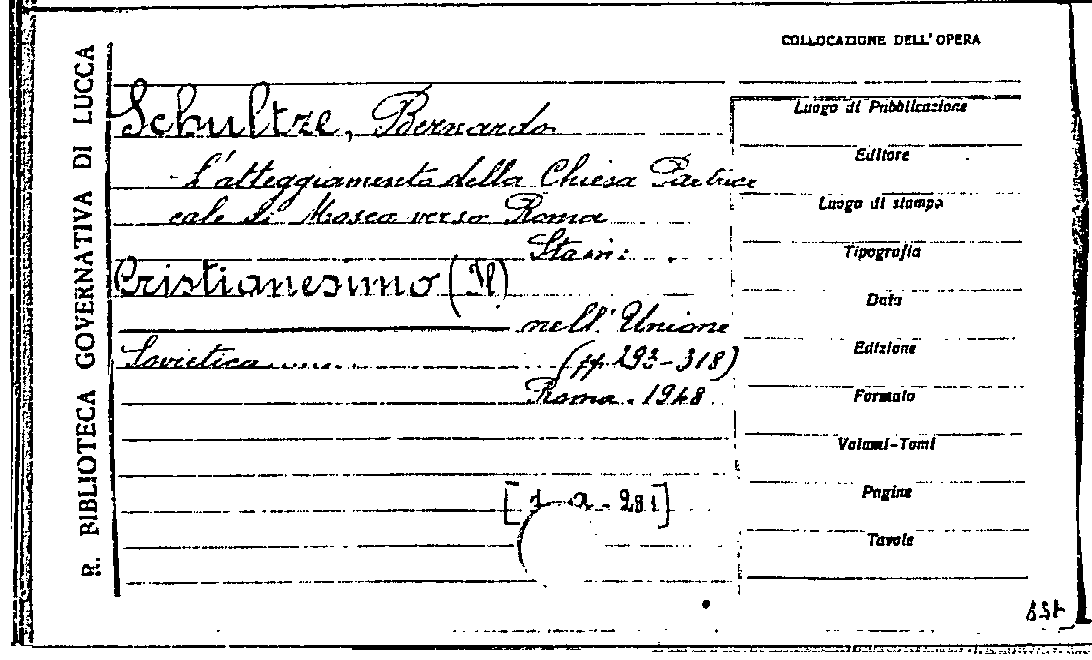 R. BIBLIOTECA GOVERNATIVA DI LUCCA
COLLOCAZIONE DELL'OPERA
Schultze, Bernardo
L'atteggiamento della Chiesa Patriar
cale di Mosca verso Roma
Sta in:
Cristianesimo (Il)
nell'Unione
Sovietica (pp. 293-318)
Roma. 1948
281]
Luogo di Pubblicazione
Editore
Luogo di stampa
Tipografia
Data
Edizione
Formato
Volumi-Tomi
Pagine
Tavole